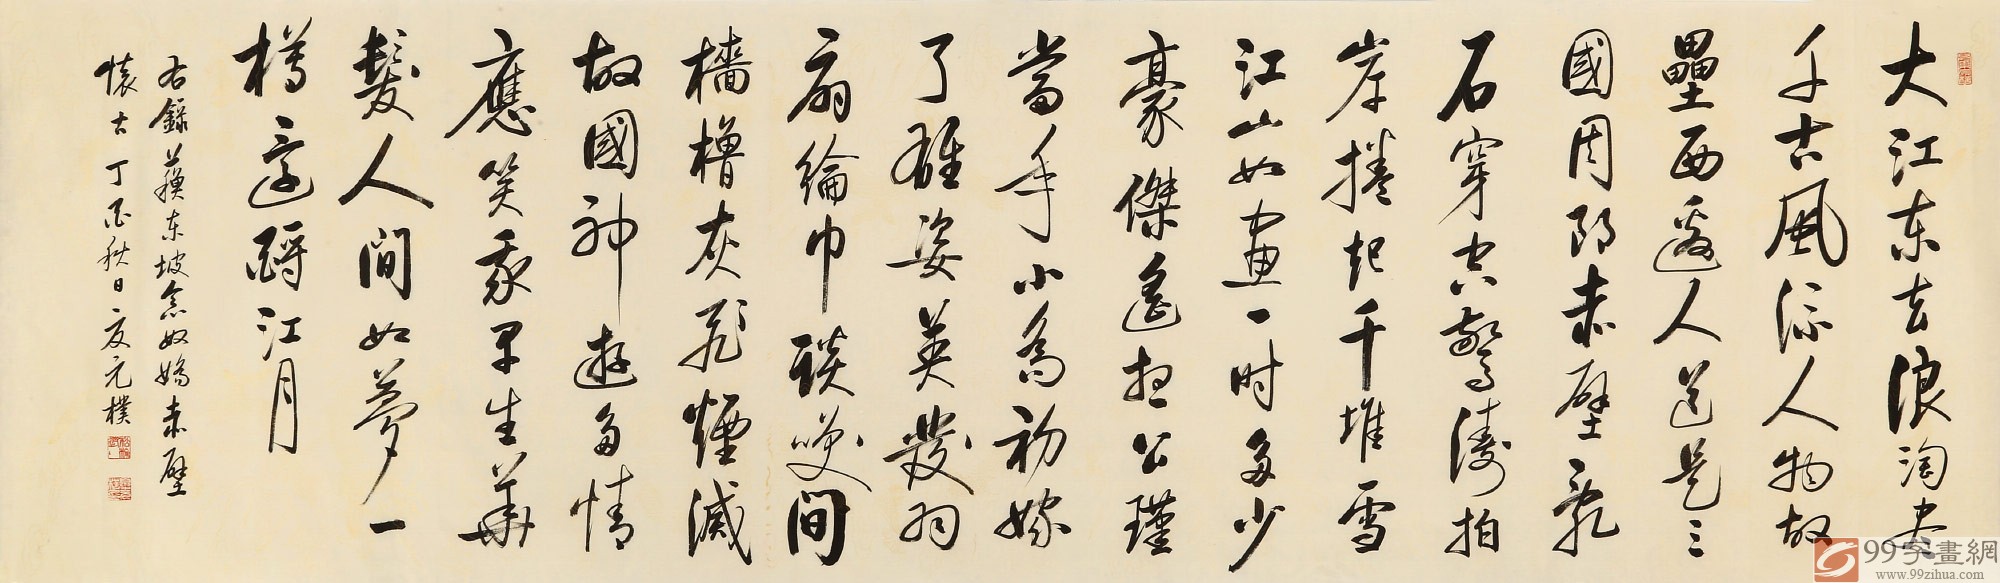 大江东去浪淘尽
千古風流人物故
壘西邊人道是三
國周郎赤壁亂
石穿空驚濤拍
岸捲起千堆雪
江山如畫一时多少
豪傑遙想公瑾
當年小喬初嫁
了雄姿英發羽
扇綸巾談笑間
檣櫓灰飛煙滅
故國神遊多情
應笑我早生華
髮人間如夢一
樽還酹江月
右錄蘇东坡念奴嬌赤壁
懷古丁酉秋日元樸
99字畫網
www.99zihua.com